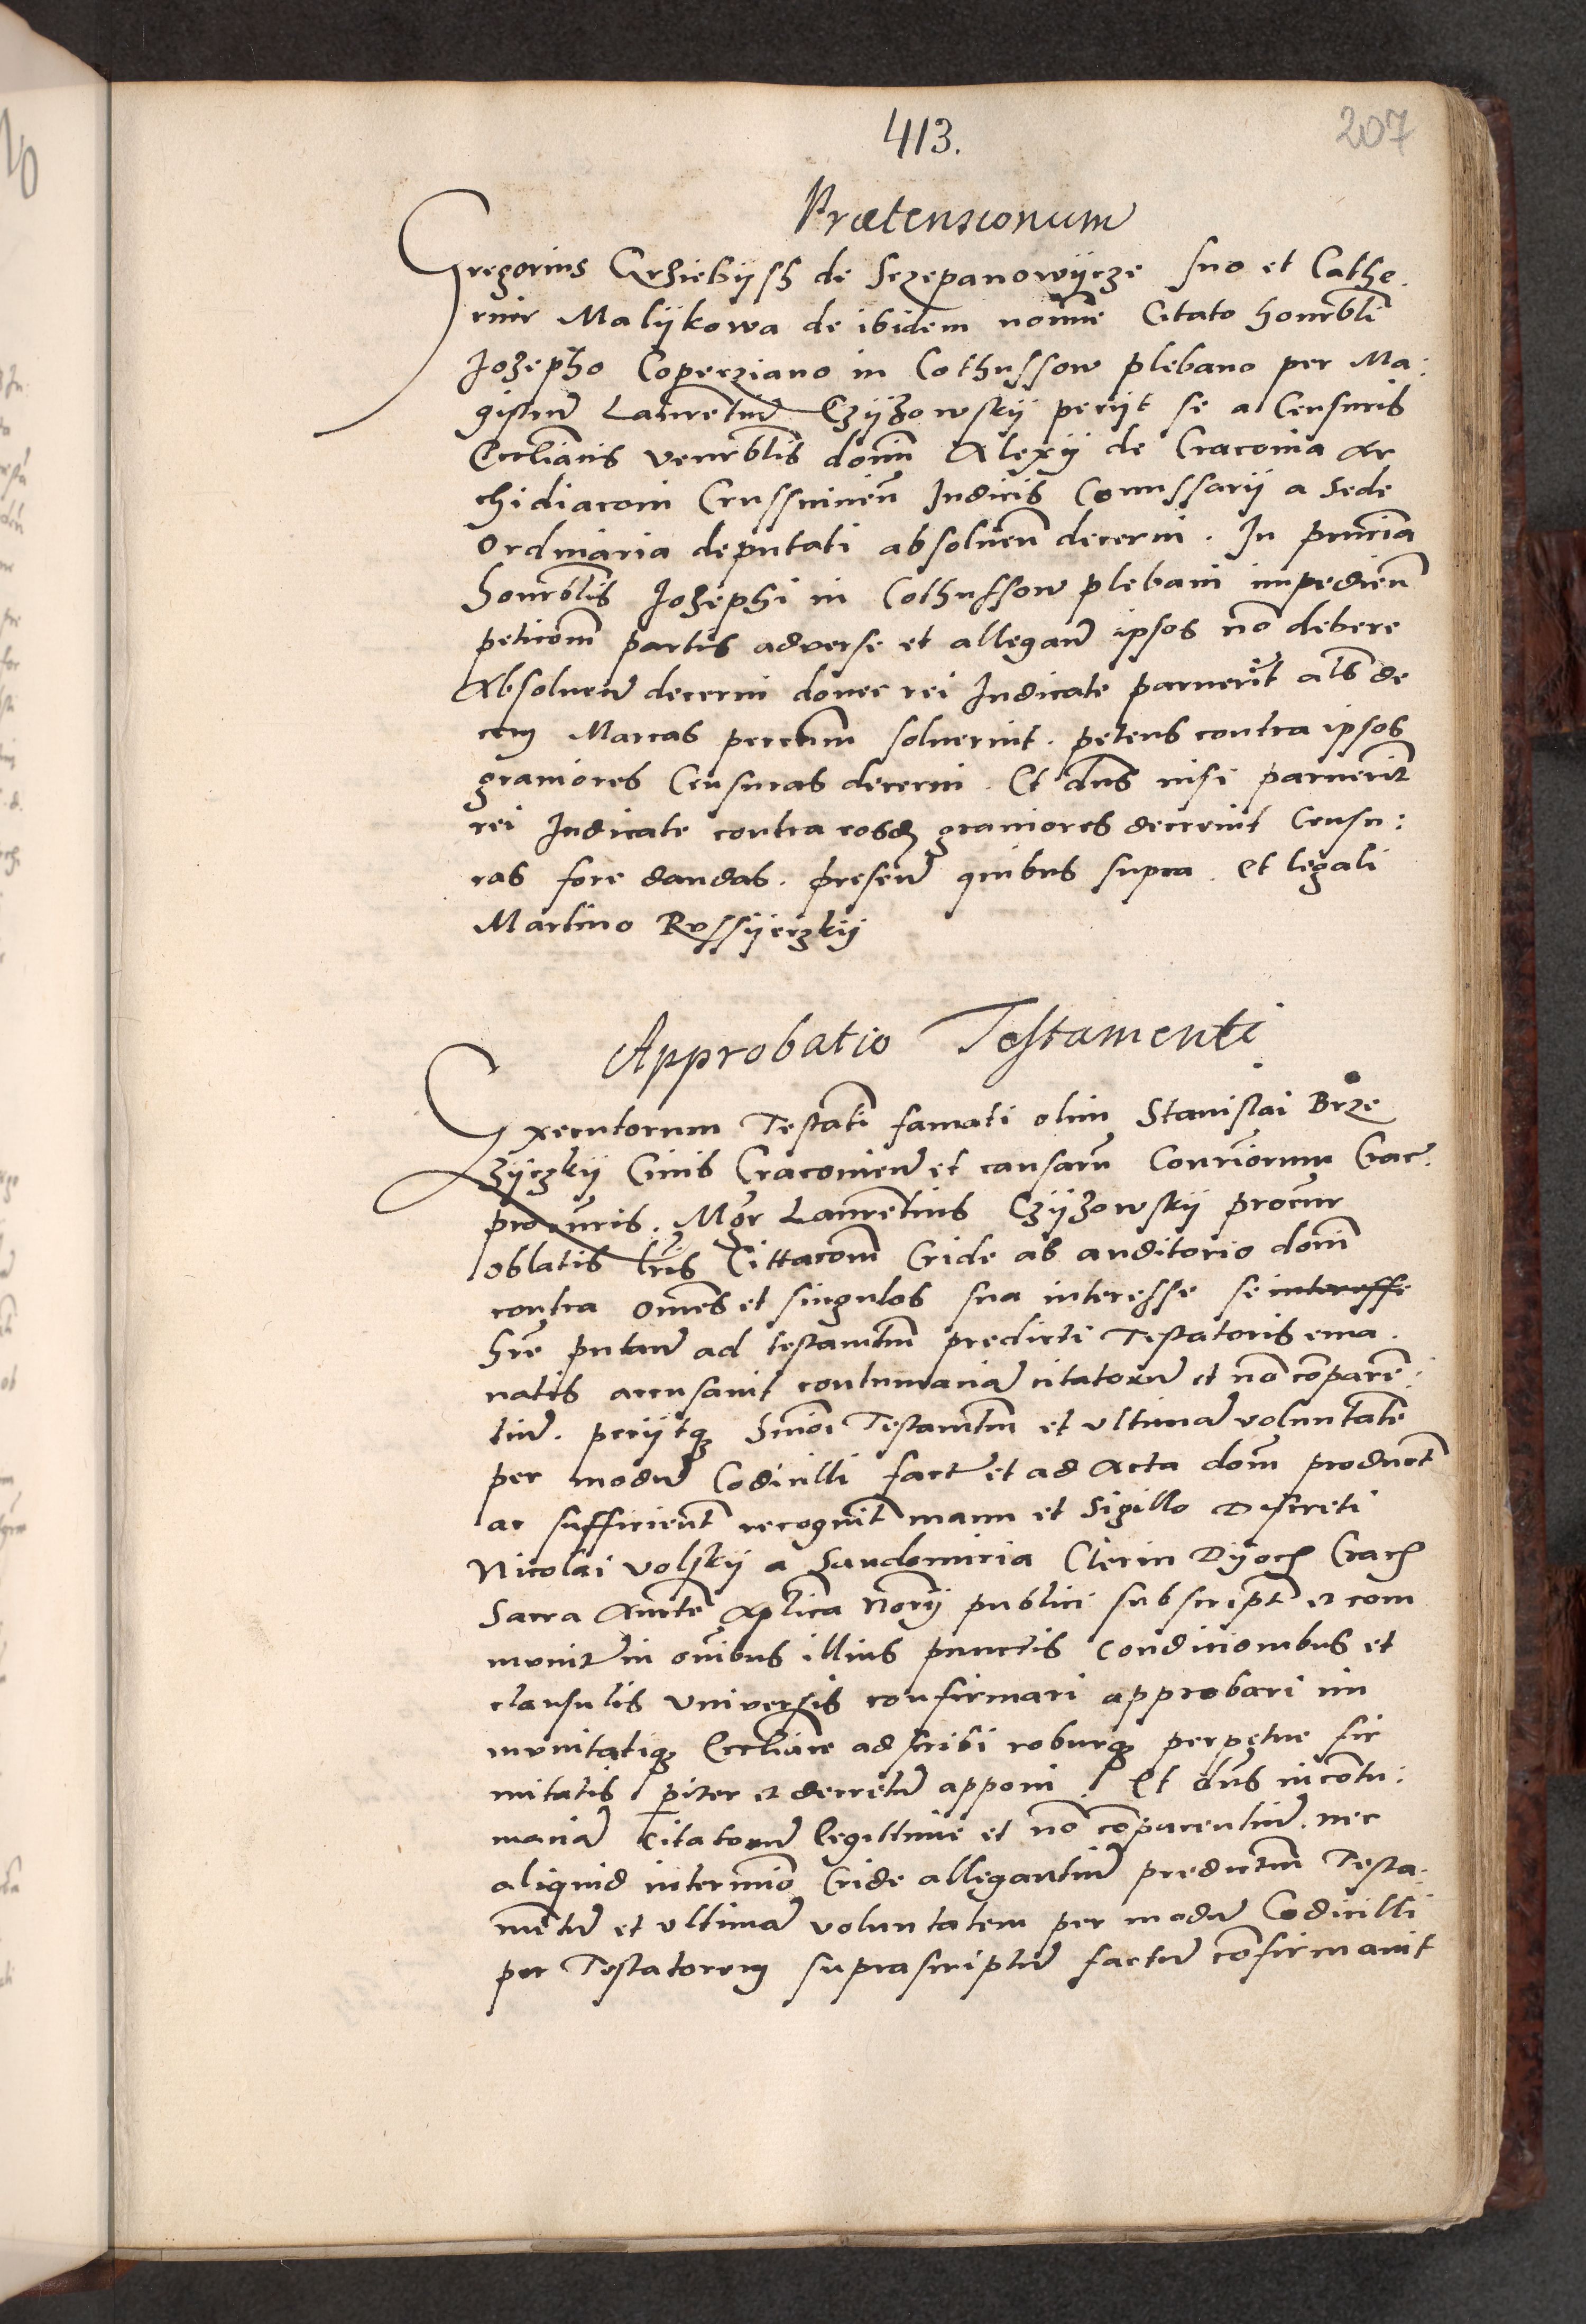 413.
207
Prætensionum
Gregorius Grziebÿsh de Sczepanowÿcze suo et Cathe.
rine Malÿkowa de ibidem nomine Citato honorbli
Jozepho Coperziano in Cothussow plebano per Ma:
gistrum Laurentium Czÿzowskÿ petiit se a Censuris
Eccliasticis venerblis domini Alexÿ de Cracovia Ar
chidiaconi Crussvicien Judicis Comissarÿ a Sede
Ordinaria deputati absolven decerni. In pncia
honorblis Jozephi in Cothussow plebani impedien
peticionem partis adverse et allegan ipsos no debere
Absolven decerni donec rei Judicate paruerint als de
cem Marcas pecuniarum solverint. petens contra ipsos
graviores Censuras decerni. Et dns nisi paruerint
rei Judicate contra eosdem graviores decrevit Censu:
ras fore dandas. presen quibus supra. et legali
Martino Rossÿeczkÿ
Approbatio Testamenti
Executorum Testati famati olim Stanislai Brze
zÿczkÿ Civis Cracovien et causarum Consistoriorum Crac.
procuris. Mgr Laurentius Czÿzowskÿ procur
oblatis lris Cittacom Cride ab auditorio dom
contra omes et singulos sua interesse se interesse
hre putan ad testamtum predicti Testatoris ema.
natis accusavit contumaciam citatorum et no comparen:
tium. petiitque Smoi Testamtum et ultimam voluntatem
per modum Codicilli factum et ad Acta dom product
ac sufficient recognit manu et Sigillo Discreti
Nicolai Volskÿ a Sandomiria Clerici Dÿoc Crac
Sacra Aucte Aplica Norÿ publici subscript et com
munit in omibus illius punctis Condicionibus et
clausulis universis confirmari approbari im
munitatique Eccliasce adscribi roburque perpetue fir
mitatis piter et decretum apponi. Et dns in contu:
maciam Citatorum legittime et no comparentium. nec
aliquid in termino Cride allegantium predictum Testa.
mentum et ultimam voluntatem per modum Codicilli
per Testatorem suprascriptum factum confirmavit